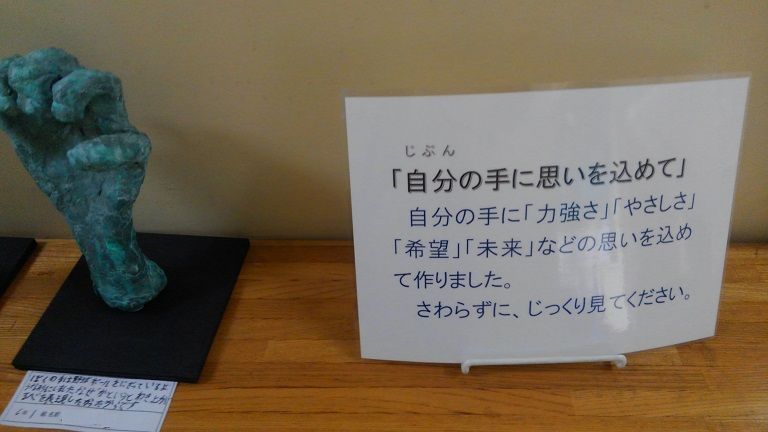 じぶん
「自分の手に思いを込めて」
自分の手に「力強さ」「やさしさ」
「希望」「未来」などの思いを込め
て作りました。
さわらずに、じっくり見てください。
ぼくの手は野球ボールを